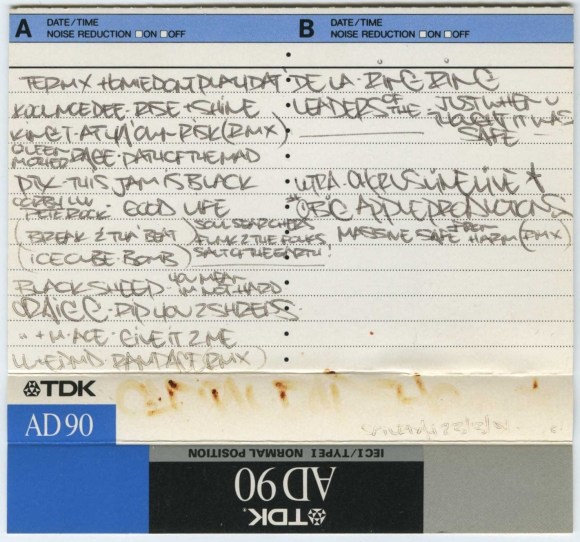 A DATE/TIME
NOISE REDUCTION □ON □OFF
B DATE/TIME
NOISE REDUCTION □ON □OFF
TERMX HOMEDONTPLAYDAT
KOOLMOEDEE-RISE+SHINE
KINGT-ATYAOWNRISK(RMX)
QUEEN MOTHER RAGE-PATHOFTHEMAD
PTX-THIS JAM IS BLACK
PETE ROCK · GOOD LIFE
(BREAK 2 THA BEAT) SOULSEARCHERS
(ICECUBE-BOMB) SALTOFTHEEARTH!
BLACKSHEEP YOU MEAN I'M NOT HARD
CRAIG G-RIP YOU 2 SHREDS
" + M·ACE-GIVE IT 2 ME
(RMX)
DE LA RING RING
LEADERS OF THE JUST WHEN U THOUGHT IT WAS SAFE
ULTRA-CHORUSLINELIVE
APPLEPRODUCTIONS
MASSIVE SAFE FROM HARM (RMX)
TDK
AD 90
IECI/TYPEI NORMAL POSITION
AD 90
TDK